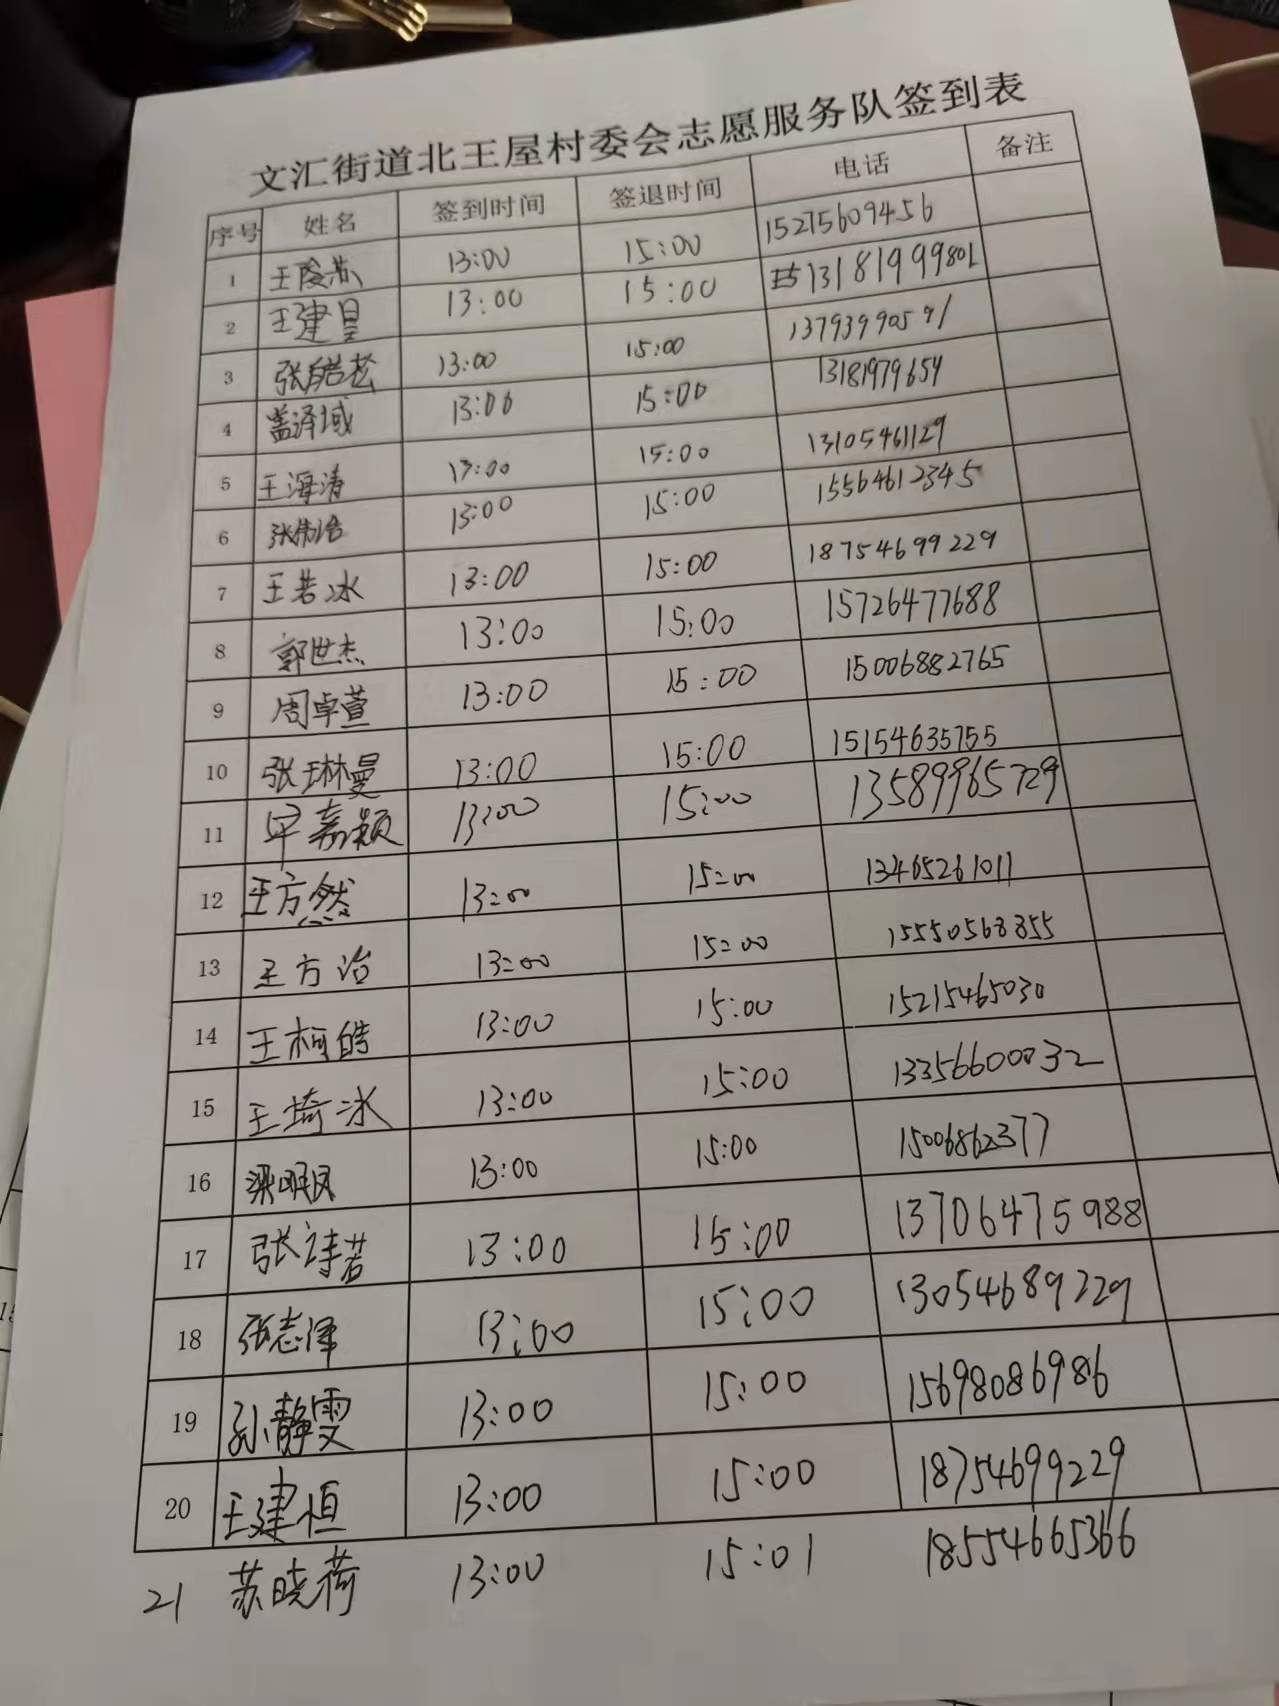 文汇街道北王屋村委会志愿服务队签到表
序号 姓名 签到时间 签退时间 电话 备注
1 13:00 15:00 15275609456
2 王建昊 13:00 15:00 13181999801
3 张皓菘 13:00 15:00 13793990571
4 盖泽域 13:00 15:00 13181979654
5 王海清 13:00 15:00 13105461129
6 13:00 15:00 15564612345
7 王若冰 13:00 15:00 18754699229
8 郭世杰 13:00 15:00 15726477688
9 周卓萱 13:00 15:00 15006882765
10 张琳曼 13:00 15:00 15154635755
11 嘉颖 13:00 15:00 13589965729
12 王方然 13:00 15:00 13465261011
13 王方治 13:00 15:00 15550568855
14 王柯皓 13:00 15:00 15215465030
15 王琦冰 13:00 15:00 13356600032
16 梁明凤 13:00 15:00 15006862377
17 张诗若 13:00 15:00 13706475988
18 张志泽 13:00 15:00 13054689229
19 孙静雯 13:00 15:00 15698086986
20 王建恒 13:00 15:00 18754699229
21 苏晓荷 13:00 15:01 18554665366